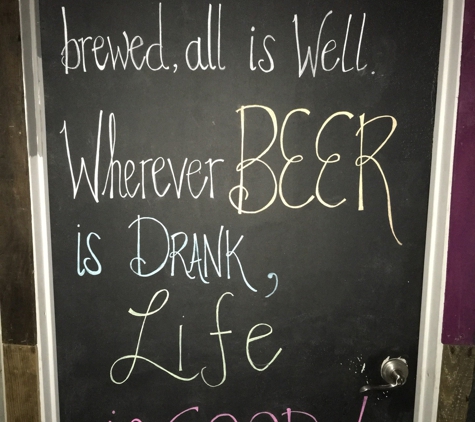 brewed, all is Well.
Wherever BEER
is DRANK,
Life
is GOOD!